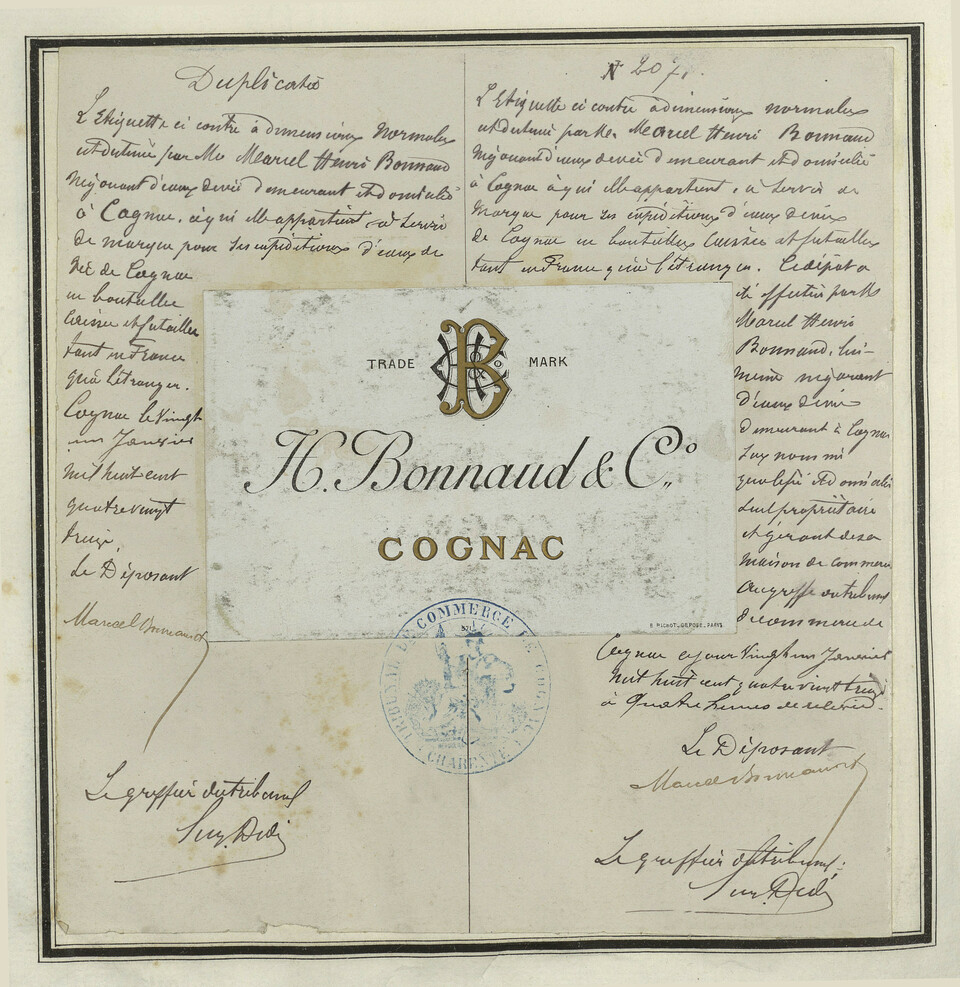 Duplicata
L'Etiquette ci contre à dimensions normales
est destinée par Mr Marcel Henri Bonnaud
Négociant d'eaux de vie demeurant et domicilié
à Cognac, à qui elle appartient, à servir
de marque pour ses expéditions d'eaux de
vie de Cognac
en bouteilles
caisses et futailles
tant en France
qu'à l'étranger.
Cognac le vingt
un Janvier
mil huit cent
quatre vingt
treize
Le Déposant
Marcel Bonnaud
Le greffier du tribunal
N° 207
L'Etiquette ci contre à dimensions normales
est destinée par Mr Marcel Henri Bonnaud
Négociant d'eaux de vie demeurant et domicilié
à Cognac à qui elle appartient, à servir de
marque pour ses expéditions d'eaux de vie
de Cognac en bouteilles caisses et futailles
tant en France qu'à l'étranger. Ce dépôt a
été effectué par Mr
Marcel Henri
Bonnaud, lui-
même négociant
d'eaux de vie
demeurant à Cognac
qualifié et domicilié
seul propriétaire
et gérant de sa
maison de commerce
au greffe du tribunal
de commerce de
Cognac ce jour vingt un Janvier
mil huit cent quatre vingt treize
à quatre heures de relevée.
Le Déposant
Marcel Bonnaud
Le greffier du tribunal.
TRADE MARK
B & Co
H. Bonnaud & Co.
COGNAC
TRIBUNAL DE COMMERCE DE COGNAC
CHARENTE